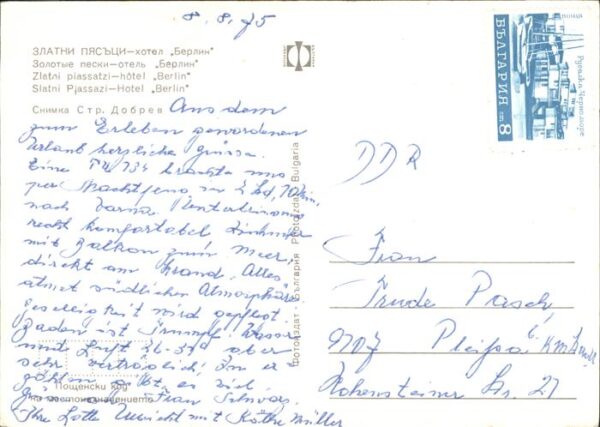 8.8.75
ЗЛАТНИ ПЯСЪЦИ—хотел „Берлин"
Золотые пески—отель „Берлин"
Zlatni piassatzi—hôtel „Berlin"
Slatni Pjassazi—Hotel „Berlin"
Снимка Стр. Добрев
Aus dem
zum Erleben gewordenen
Urlaub herzliche Grüsse.
Eine TU 134 brachte uns
per Nachtflug in 2 Std, 10 Min,
nach Varna
recht komfortabel
mit Balkon zum Meer,
direkt am Strand. Alles
atmet südliche Atmosphäre
Geselligkeit wird gepflegt.
Baden ist Trumpf. Wasser
und Luft 26-37° aber
sehr verträglich! Im
es viel
Frau
Ihre Lotte Umicht mit Käthe Müller
Пощенски код
на местоназначението
Фотоиздат - България Photoizdat - Bulgaria
БЪЛГАРИЯ
8
ст.
DDR
Frau
Trude Pasch
9107 Pleißa
Hohensteiner Str. 27